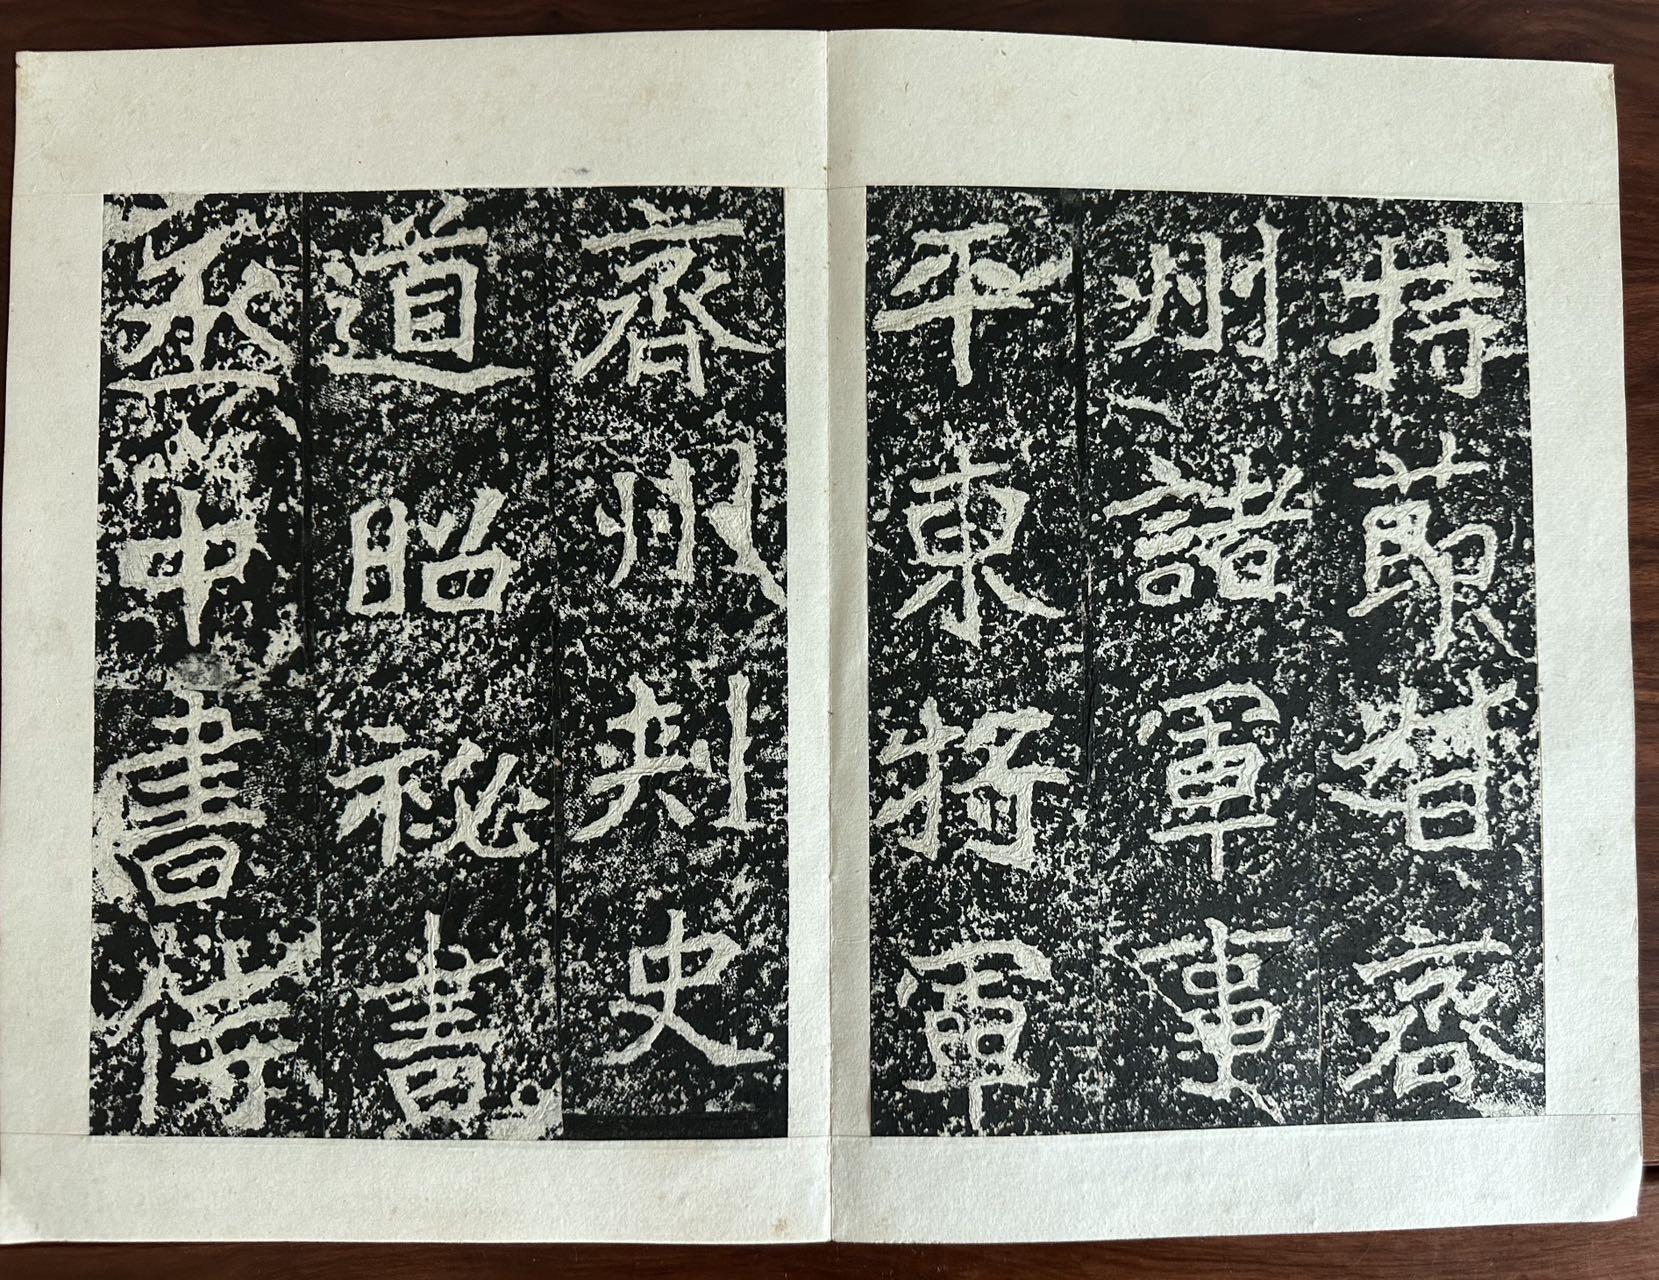 持節督齊
州諸軍事
平東將軍
齊州刺史
道昭祕書
丞中書侍